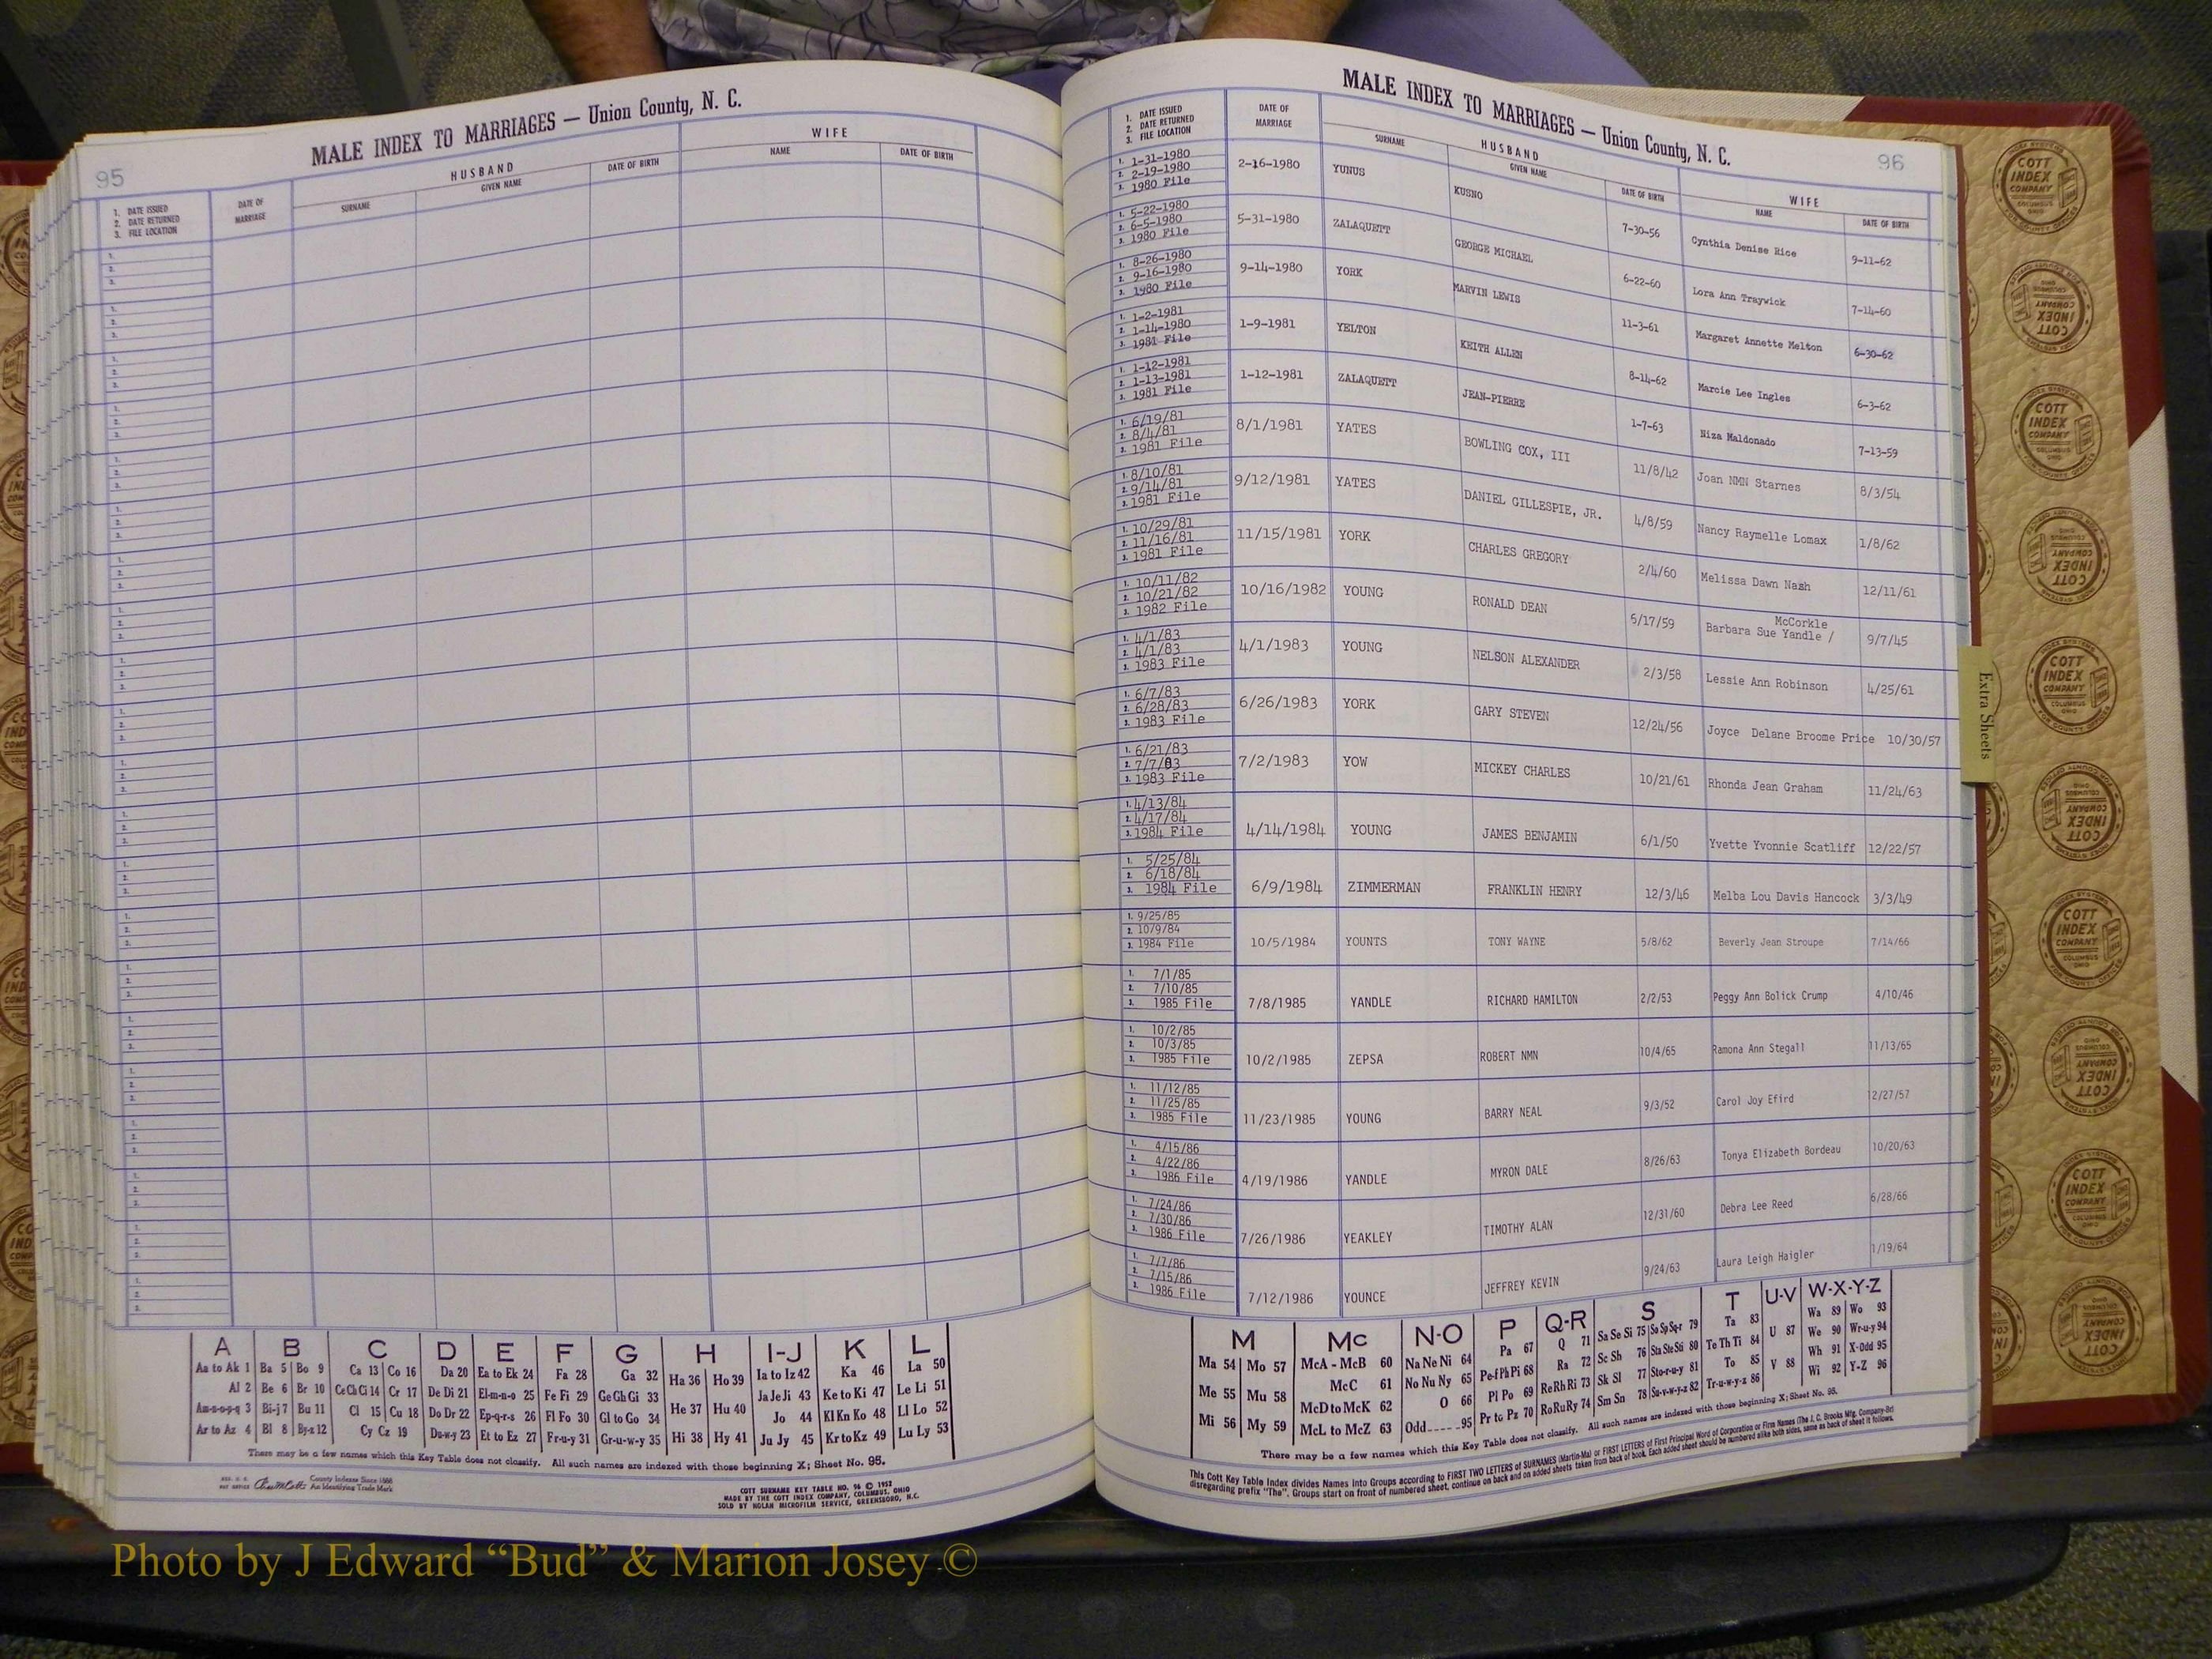 MALE INDEX TO MARRIAGES — Union County, N. C.
95
1. DATE ISSUED
2. DATE RETURNED
3. FILE LOCATION
DATE OF MARRIAGE
HUSBAND
SURNAME GIVEN NAME DATE OF BIRTH
WIFE
NAME DATE OF BIRTH
A B C D E F G H I-J K L
Aa to Ak 1 Ba 5 Bo 9 Ca 13 Co 16 Da 20 Ea to Ek 24 Fa 28 Ga 32 Ha 36 Ho 39 Ia to Iz 42 Ka 46 La 50
Al 2 Be 6 Br 10 Ce Ch Ci 14 Cr 17 De Di 21 El-m-n-o 25 Fe Fi 29 Ge Gh Gi 33 He 37 Hu 40 Ja Je Ji 43 Ke to Ki 47 Le Li 51
Am-n-o-p-q 3 Bi-j 7 Bu 11 Cl 15 Cu 18 Do Dr 22 Ep-q-r-s 26 Fl Fo 30 Gl to Go 34 Jo 44 Kl Kn Ko 48 Ll Lo 52
Ar to Az 4 Bl 8 By-z 12 Cy Cz 19 Du-w-y 23 Et to Ez 27 Fr-u-y 31 Gr-u-w-y 35 Hi 38 Hy 41 Ju Jy 45 Kr to Kz 49 Lu Ly 53
There may be a few names which this Key Table does not classify. All such names are indexed with those beginning X; Sheet No. 95.
County Indexes Since 1888
An Identifying Trade Mark
COTT SURNAME KEY TABLE NO. 96 © 1952
MADE BY THE COTT INDEX COMPANY, COLUMBUS, OHIO
SOLD BY NOLAN MICROFILM SERVICE, GREENSBORO, N.C.
MALE INDEX TO MARRIAGES — Union County, N. C.
96
1. DATE ISSUED
2. DATE RETURNED
3. FILE LOCATION
DATE OF MARRIAGE
HUSBAND
SURNAME GIVEN NAME DATE OF BIRTH
WIFE
NAME DATE OF BIRTH
1. 1-31-1980
2. 2-19-1980
3. 1980 File
2-16-1980 YUNUS KUSNO 7-30-56 Cynthia Denise Rice 9-11-62
1. 5-22-1980
2. 6-5-1980
3. 1980 File
5-31-1980 ZALAQUETT GEORGE MICHAEL 6-22-60 Lora Ann Traywick 7-14-60
1. 8-26-1980
2. 9-16-1980
3. 1980 File
9-14-1980 YORK MARVIN LEWIS 11-3-61 Margaret Annette Melton 6-30-62
1. 1-2-1981
2. 1-14-1980
3. 1981 File
1-9-1981 YELTON KEITH ALLEN 8-14-62 Marcie Lee Ingles 6-3-62
1. 1-12-1981
2. 1-13-1981
3. 1981 File
1-12-1981 ZALAQUETT JEAN-PIERRE 1-7-63 Niza Maldonado 7-13-59
1. 6/19/81
2. 8/4/81
3. 1981 File
8/1/1981 YATES BOWLING COX, III 11/8/42 Joan NMN Starnes 8/3/54
1. 8/10/81
2. 9/14/81
3. 1981 File
9/12/1981 YATES DANIEL GILLESPIE, JR. 4/8/59 Nancy Raymelle Lomax 1/8/62
1. 10/29/81
2. 11/16/81
3. 1981 File
11/15/1981 YORK CHARLES GREGORY 2/4/60 Melissa Dawn Nash 12/11/61
1. 10/11/82
2. 10/21/82
3. 1982 File
McCorkle
10/16/1982 YOUNG RONALD DEAN 5/17/59 Barbara Sue Yandle / 9/7/45
1. 4/1/83
2. 4/1/83
3. 1983 File
4/1/1983 YOUNG NELSON ALEXANDER 2/3/58 Lessie Ann Robinson 4/25/61
1. 6/7/83
2. 6/28/83
3. 1983 File
6/26/1983 YORK GARY STEVEN 12/24/56 Joyce Delane Broome Price 10/30/57
1. 6/21/83
2. 7/7/83
3. 1983 File
7/2/1983 YOW MICKEY CHARLES 10/21/61 Rhonda Jean Graham 11/24/63
1. 4/13/84
2. 4/17/84
3. 1984 File
4/14/1984 YOUNG JAMES BENJAMIN 6/1/50 Yvette Yvonnie Scatliff 12/22/57
1. 5/25/84
2. 6/18/84
3. 1984 File
6/9/1984 ZIMMERMAN FRANKLIN HENRY 12/3/46 Melba Lou Davis Hancock 3/3/49
1. 9/25/85
2. 10/9/84
3. 1984 File
10/5/1984 YOUNTS TONY WAYNE 5/8/62 Beverly Jean Stroupe 7/14/66
1. 7/1/85
2. 7/10/85
3. 1985 File
7/8/1985 YANDLE RICHARD HAMILTON 2/2/53 Peggy Ann Bolick Crump 4/10/46
1. 10/2/85
2. 10/3/85
3. 1985 File
10/2/1985 ZEPSA ROBERT NMN 10/4/65 Ramona Ann Stegall 11/13/65
1. 11/12/85
2. 11/25/85
3. 1985 File
11/23/1985 YOUNG BARRY NEAL 9/3/52 Carol Joy Efird 12/27/57
1. 4/15/86
2. 4/22/86
3. 1986 File
4/19/1986 YANDLE MYRON DALE 8/26/63 Tonya Elizabeth Bordeau 10/20/63
1. 7/24/86
2. 7/30/86
3. 1986 File
7/26/1986 YEAKLEY TIMOTHY ALAN 12/31/60 Debra Lee Reed 6/28/66
1. 7/7/86
2. 7/15/86
3. 1986 File
7/12/1986 YOUNCE JEFFREY KEVIN 9/24/63 Laura Leigh Haigler 1/19/64
Extra Sheets
M Mc N-O P Q-R S T U-V W-X-Y-Z
Ma 54 Mo 57 McA - McB 60 Na Ne Ni 64 Pa 67 Q 71 Sa Se Si 75 So Sp Sq-r 79 Ta 83 U 87 Wa 89 Wo 93
Me 55 Mu 58 McC 61 No Nu Ny 65 Pe-f Ph Pi 68 Ra 72 Sc Sh 76 Sta Ste Sti 80 Te Th Ti 84 V 88 We 90 Wr-u-y 94
Mi 56 My 59 McD to McK 62 O 66 Pl Po 69 Re Rh Ri 73 Sk Sl 77 Sto-r-u-y 81 To 85 Wh 91 X-Odd 95
McL to McZ 63 Odd 95 Pr to Pz 70 Ro Ru Ry 74 Sm Sn 78 Su-v-w-y-z 82 Tr-u-w-y-z 86 Wi 92 Y-Z 96
There may be a few names which this Key Table does not classify. All such names are indexed with those beginning X; Sheet No. 95.
This Cott Key Table Index divides Names into Groups according to FIRST TWO LETTERS of SURNAMES (Martin-Ma) or FIRST LETTERS of First Principal Word of Corporation or Firm Names (The J. C. Brooks Mfg. Company-Br)
disregarding prefix "The". Groups start on front of numbered sheet, continue on back and on added sheets taken from back of book. Each added sheet should be numbered alike both sides, same as back of sheet it follows.
COTT
INDEX
COMPANY
COLUMBUS
OHIO
Photo by J Edward “Bud” & Marion Josey ©